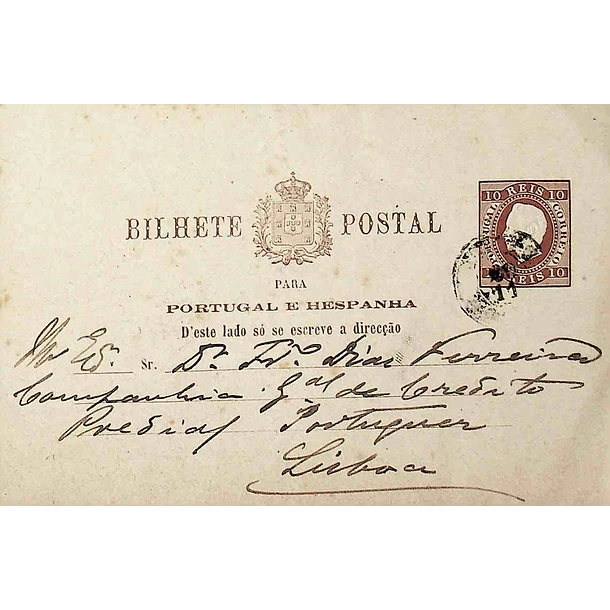 BILHETE POSTAL
PARA
PORTUGAL E HESPANHA
D'este lado só se escreve a direcção
10 REIS 10
PORTUGAL CORREIO
10 REIS 10
Sr. Dr. Frº. Dias Ferreira
Companhia Gal de Credito
Predial Portuguez
Lisboa